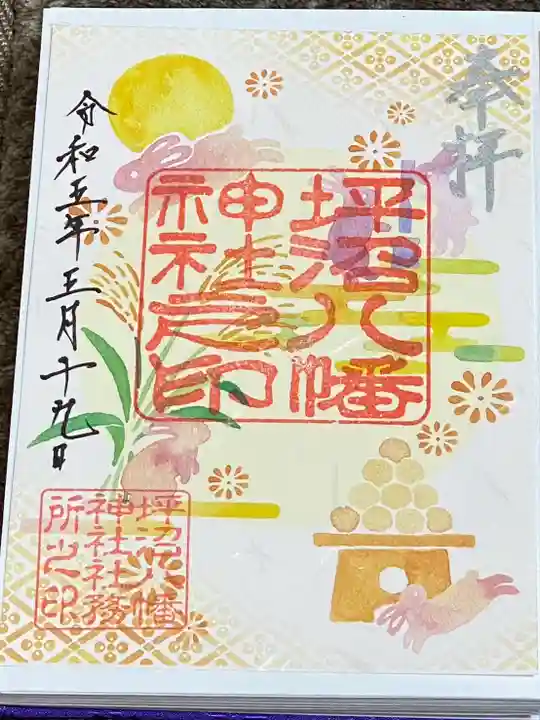 奉拝
坪沼八幡
神社之印
令和五年三月十九日
坪沼八幡
神社社務
所之印